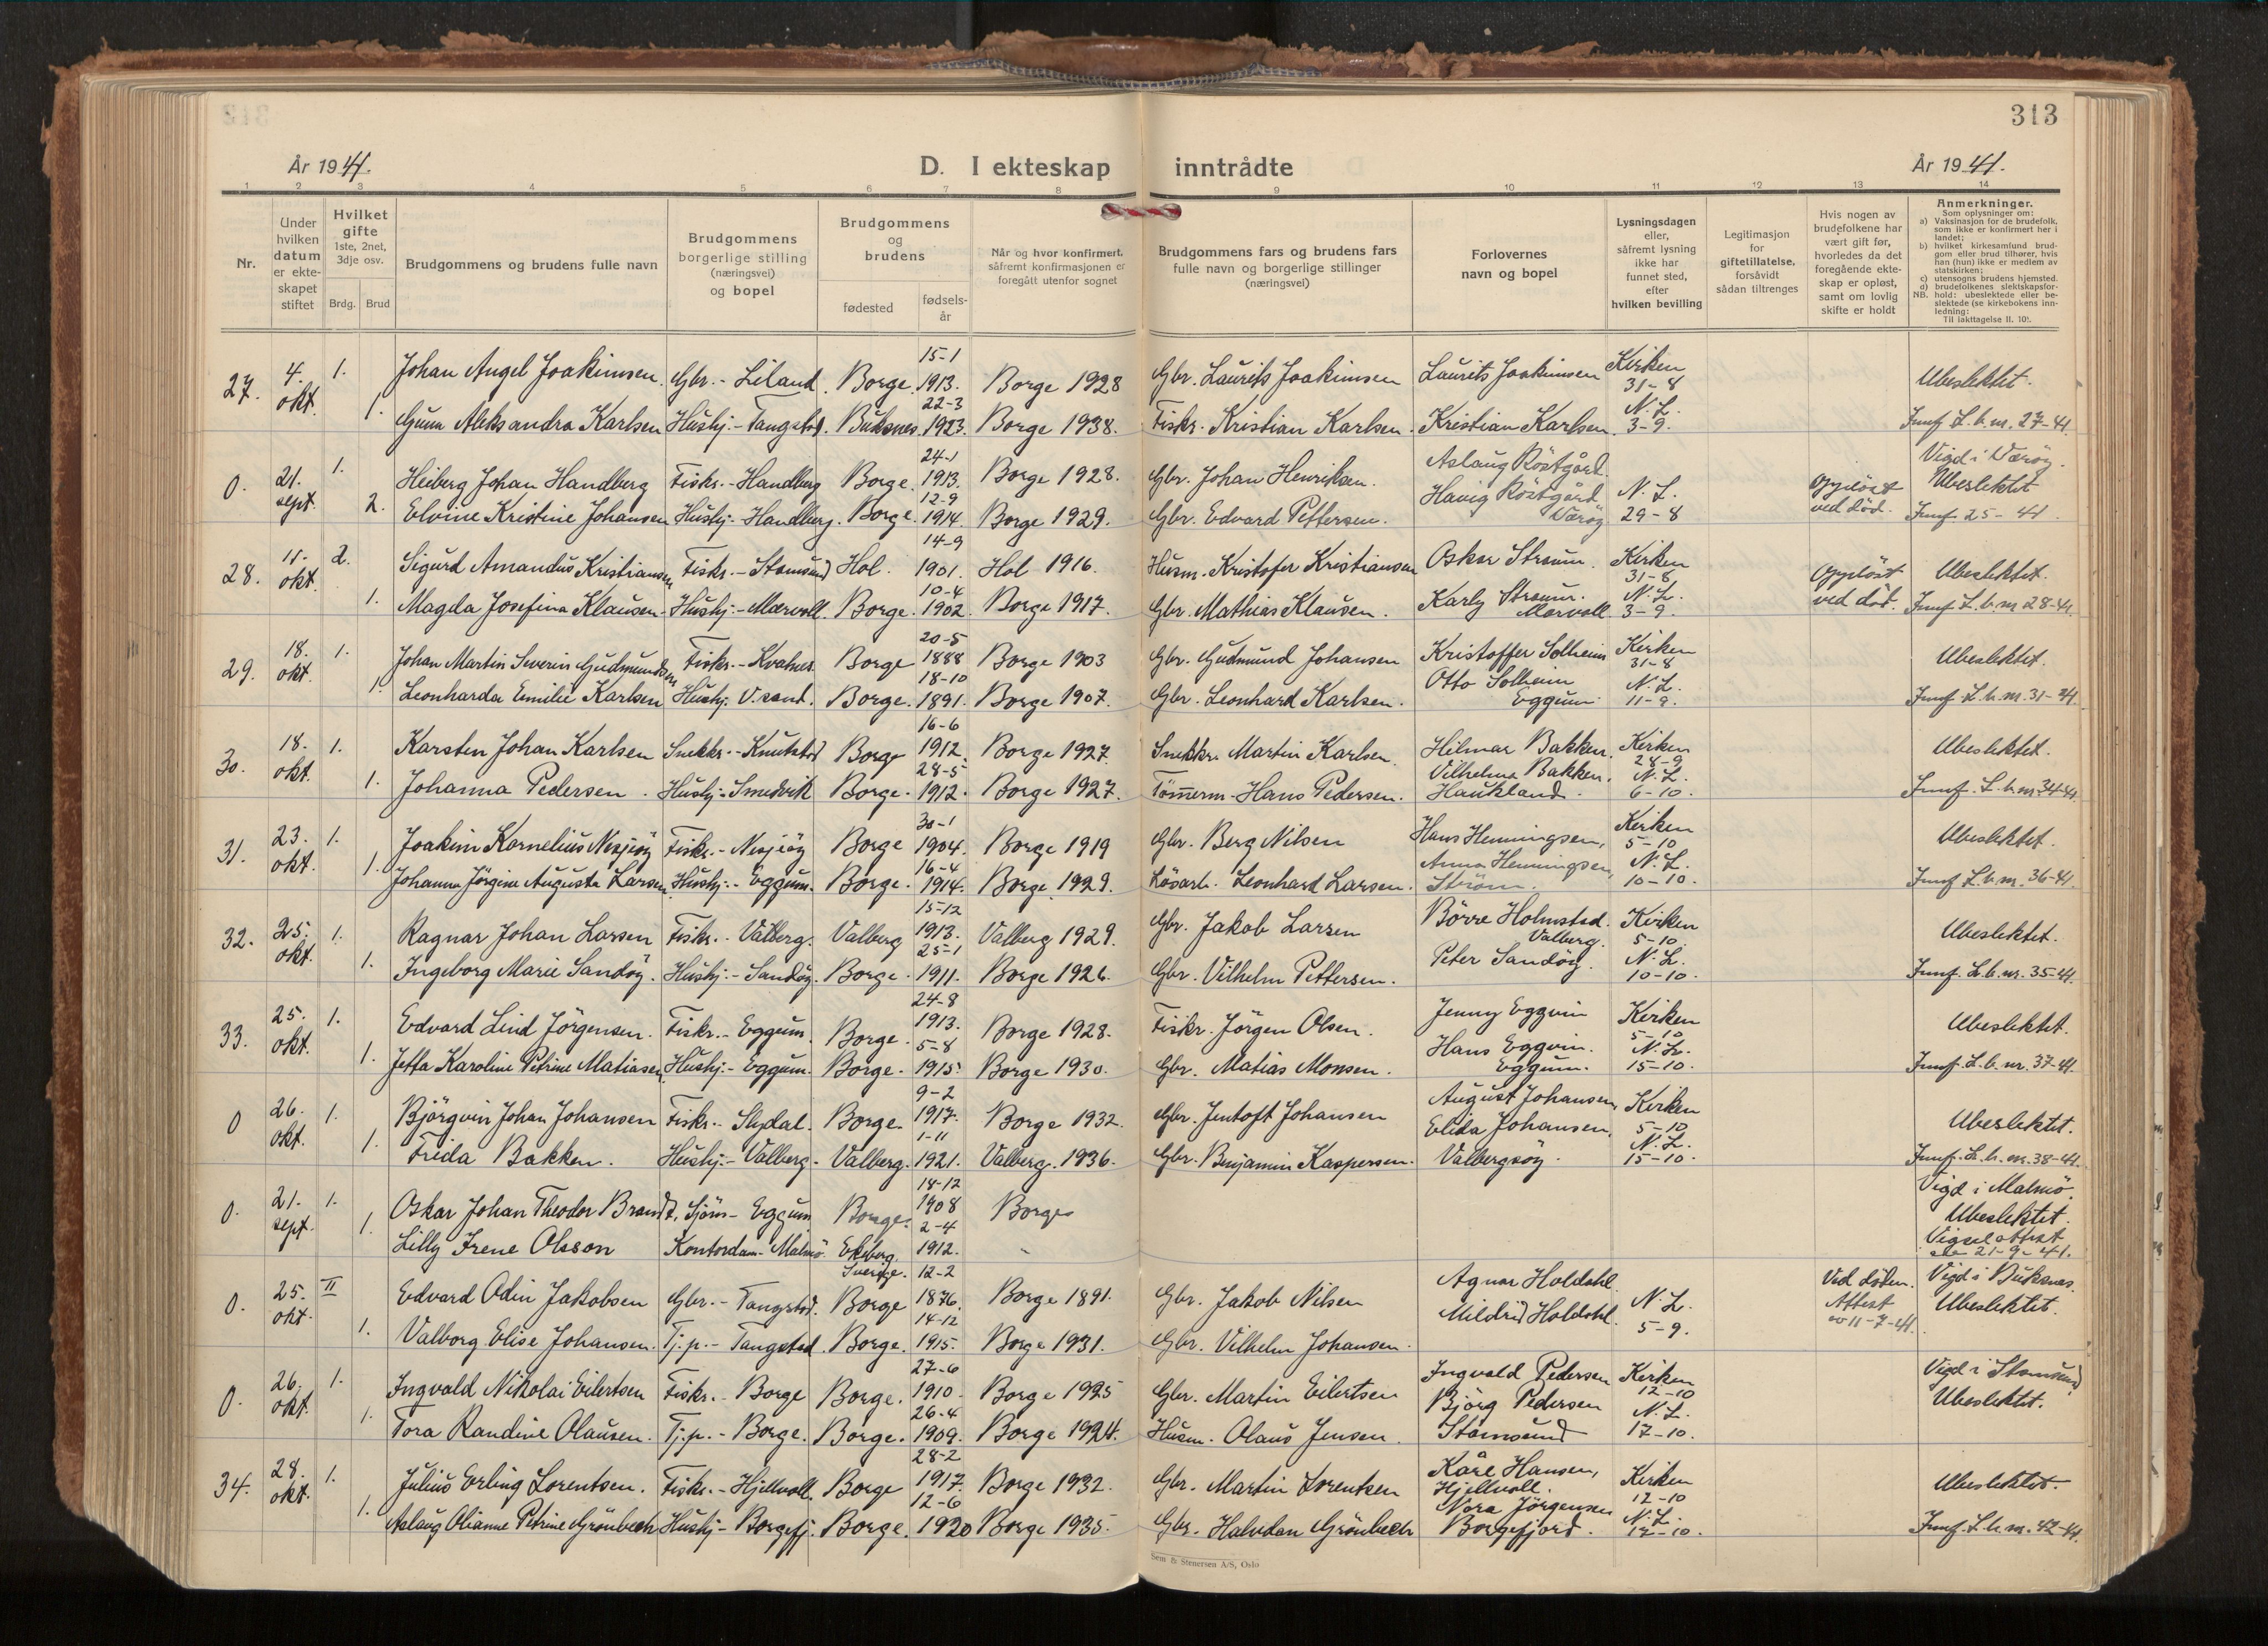 313
År 1941.
D. I ekteskap inntrådte
År 1941.
1 2 3 4 5 6 7 8 9 10 11 12 13 14
Nr.
Under hvilken datum er ekteskapet stiftet
Hvilket gifte 1ste, 2net, 3dje osv.
Brdg. Brud
Brudgommens og brudens fulle navn
Brudgommens borgerlige stilling (næringsvei) og bopel
Brudgommens og brudens
fødested
fødselsår
Når og hvor konfirmert, såfremt konfirmasjonen er foregått utenfor sognet
Brudgommens fars og brudens fars fulle navn og borgerlige stillinger (næringsvei)
Forlovernes navn og bopel
Lysningsdagen eller, såfremt lysning ikke har funnet sted, efter hvilken bevilling
Legitimasjon for giftetillatelse, forsåvidt sådan tiltrenges
Hvis nogen av brudefolkene har vært gift før, hvorledes da det foregående ekteskap er opløst, samt om lovlig skifte er holdt
Anmerkninger.
Som oplysninger om:
a) Vaksinasjon for de brudefolk, som ikke er konfirmert her i landet;
b) hvilket kirkesamfund brudgom eller brud tilhører, hvis han (hun) ikke er medlem av statskirken;
c) utensogns brudens hjemsted.
d) brudefolkenes slektskapsforhold: ubeslektede eller beslektede (se kirkebokens innledning:
NB. Til iakttagelse II. 10).
27. 4. okt. 1. Johan Angel Joakimsen. Gbr. - Liland. Borge. 15-1 1913. Borge 1928 Gbr. Laurits Joakimsen Laurits Joakimsen Kirken 31-8 Ubeslektet.
1. Gunn Aleksandra Karlsen Hushj. - Tangstad. Buksnes. 22-3 1923. Borge 1938. Fiskr. Kristian Karlsen. Kristian Karlsen. N. L. 3-9. Jmf L. b. nr. 27-41.
0. 21. sept. 1. Heiberg Johan Handberg Fiskr. - Handberg Borge. 24-1 1913. Borge 1928. Gbr. Johan Henriksen. Aslaug Röstgård Vigd i Værøy. Ubeslektet
2. Elvine Kristine Johansen Hushj. - Handberg. Borge. 12-9 1914. Borge 1929. Gbr. Edvard Pettersen. Havig Röstgård Værøy N. L. 29-8 Opplöst ved död. Jmf 25-41
28. 11. okt. 2. Sigurd Amandus Kristiansen Fiskr. - Stamsund Hol. 14-9 1901. Hol 1916. Husm. Kristofer Kristiansen Oskar Straum. Kirken 31-8 Opplöst ved död. Ubeslektet.
1. Magda Josefina Klausen. Hushj. - Mærvoll. Borge. 10-4 1902. Borge 1917. Gbr. Mathias Klausen. Karly Straum. Mærvoll. N. L. 3-9. Jmf L. b. nr 28-41.
29. 18. okt. 1. Johan Martin Severin Gudmundsen Fiskr. - Kvalnes. Borge 20-5 1888 Borge 1903 Gbr. Gudmund Johansen Kristoffer Solheim Kirken 31-8 Ubeslektet.
1. Leonharda Emilie Karlsen Hushj. V. sand. Borge. 18-10 1891. Borge 1907. Gbr. Leonhard Karlsen. Otto Solheim Eggum N. L. 11-9. Jmf. L. b. nr. 31-41.
30. 18. okt. 1. Karsten Johan Karlsen Snekkr. - Knutstad Borge 16-6 1912. Borge 1927. Snekkr. Martin Karlsen. Hilmar Bakken. Kirken 28-9 Ubeslektet.
1. Johanna Pedersen. Hushj. - Smedvik Borge. 28-5 1912. Borge 1927. Tömerm. Hans Pedersen. Vilhelma Bakken. Haukland. N. L. 6-10. Jmf. L. b. nr. 34-41.
31. 23. okt. 1. Joakim Kornelius Nesjeöy Fiskr. - Nesjeöy Borge 30-1 1904. Borge 1919 Gbr. Berg Nilsen Hans Henningsen, Kirken 5-10 Ubeslektet.
1. Johanna Jörgine Augusta Larsen. Hushj. - Eggum. Borge. 16-4 1914. Borge 1929. Lösarb. Leonhard Larsen. Anna Henningsen, Ström. N. L. 10-10. Jmf L. b. nr. 36-41.
32. 25. okt. 1. Ragnar Johan Larsen Fiskr. - Valberg. Valberg 15-12 1913. Valberg 1929. Gbr. Jakob Larsen Börre Holmstad. Valberg. Kirken 5-10. Ubeslektet.
1. Ingeborg Marie Sandöy. Hushj. - Sandöy. Borge. 25-1 1911. Borge 1926. Gbr. Vilhelm Pettersen. Peter Sandöy. N. L. 10-10. Jmf. L. b. nr. 35-41.
33. 25. okt. 1. Edvard Lind Jörgensen. Fiskr. - Eggum. Borge. 24-8 1913. Borge 1928. Fiskr. Jörgen Olsen. Jenny Eggvin Kirken 5-10 Ubeslektet.
1. Jetta Karoline Petrine Matiasen. Hushj. - Eggum. Borge. 5-8 1915. Borge 1930. Gbr. Matias Monsen. Hans Eggvin. Eggum. N. L. 15-10. Jmf. L. b. nr. 37-41.
0 26. okt. 1. Björgvin Johan Johansen Fiskr. - Slydal. Borge. 9-2 1917. Borge 1932. Gbr. Jentoft Johansen August Johansen, Kirken 5-10 Ubeslektet.
1. Frida Bakken. Hushj. - Valberg. Valberg. 1-11 1921. Valberg. 1936. Gbr. Benjamin Kaspersen. Elida Johansen, Valbergsöy. N. L. 15-10. Jmf. L. b. nr. 38-41.
0. 21. sept. 1. Oskar Johan Theodor Brandt. Sjöm - Eggum Borge. 18-12 1908 Borge Vigd i Malmö. Ubeslektet.
1. Lilly Irene Olsson Kontordam - Malmö Ekeberg, Sverige. 2-4 1912. - Vigselattest 21-9-41.
0. 25. okt. II Edvard Odin Jakobsen Gbr. - Tangstad. Borge 12-2 1876. Borge 1891. Gbr. Jakob Nilsen Agnar Holdahl Ved döden. Vigd i Buksnes.
1. Valborg Elise Johansen. Tj. p. - Tangstad. Borge. 14-12 1915. Borge 1931. Gbr. Vilhelm Johansen. Mildrid Holdahl. N. L. 5-9. Attest av 11-7-41. Ubeslektet.
0. 26. okt. 1. Ingvald Nikolai Eilertsen Fiskr. - Borge Borge. 27-6 1910. Borge 1925 Gbr. Martin Eilertsen Ingvald Pedersen Kirken 12-10 Vigd i Stamsund Ubeslektet.
1. Tora Randine Olausen. Tj. p. - Borge. Borge. 26-4 1909. Borge 1924. Husm. Olaus Jensen. Björg Pedersen Stamsund N. L. 17-10.
34. 28. okt. 1. Julius Erling Lorentsen. Fiskr. - Hjellvoll. Borge 28-2 1917. Borge 1932. Gbr. Martin Lorentsen Kåre Hansen, Hjellvoll. Kirken 12-10 Ubeslektet.
1. Aslaug Olianne Petrine Grönbech Hushj - Borgefj. Borge. 12-6 1920 Borge 1935. Gbr. Halvdan Grönbech Nora Jörgensen Borgefjord. N. L. 17-10. Jmf. L. b. nr. 42-41.
Sem & Stenersen A/S, Oslo